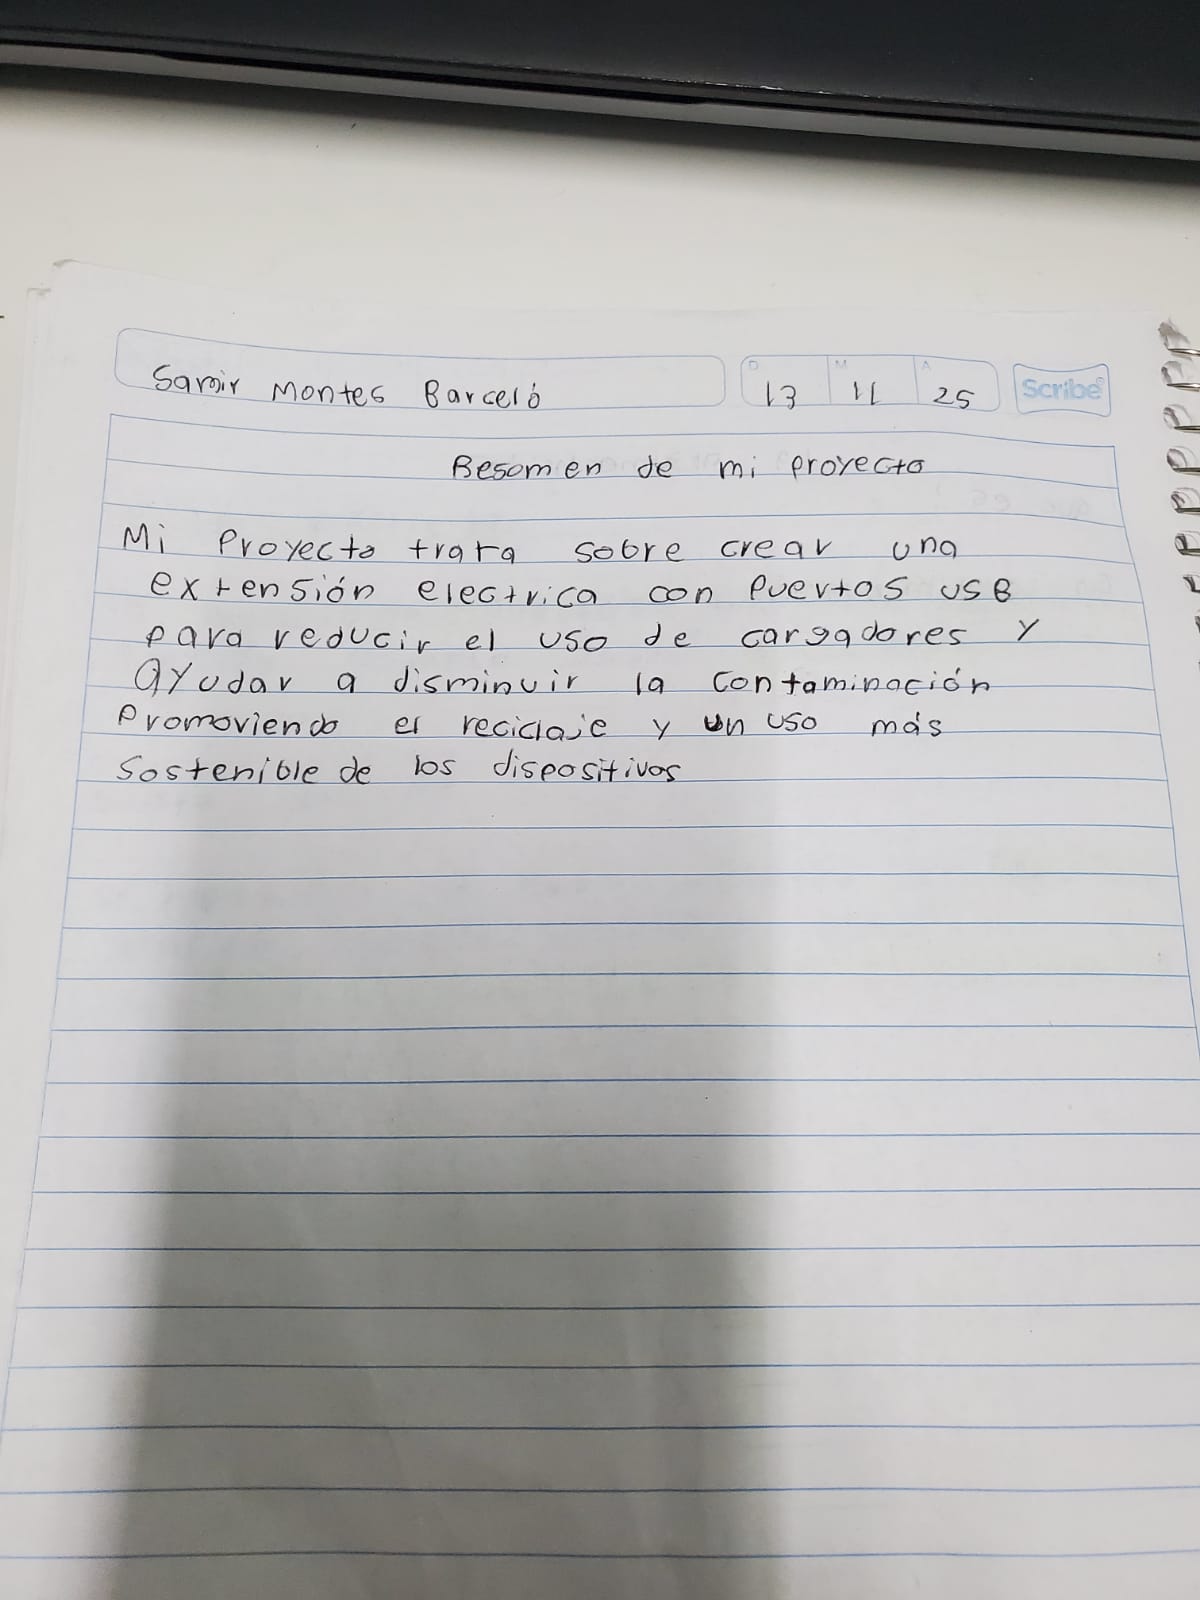 Samir Montes Barceló
D M A
13 11 25
Scribe
Resomen de mi proyecto
Mi Proyecto trata sobre crear una
extensión electrica con Puertos USB
para reducir el uso de cargadores y
ayudar a disminuir la contaminación
Promoviendo el reciclaje y un uso más
Sostenible de los dispositivos